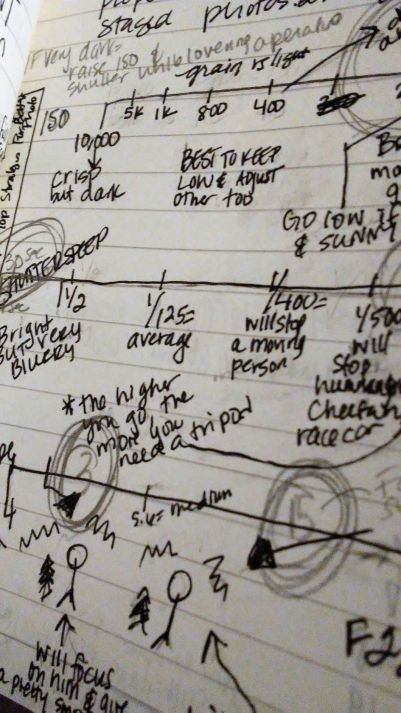 staged photos
if very dark =
raise ISO &
shutter while lowering aperature
grain is light
ISO
10,000
5K 1K 800 400
crisp
but dark
BEST TO KEEP
LOW & ADJUST
other two
GO LOW IF
& SUNNY
SHUTTER SPEED
1/2
Bright
But very
Blurry
1/125=
average
1/400=
will stop
a moving
person
1/500
will
stop
Cheetah
race car
* the higher
you go the
more you
need a tripod
4
3
5.6= medium
15
will focus
on him & give
a pretty